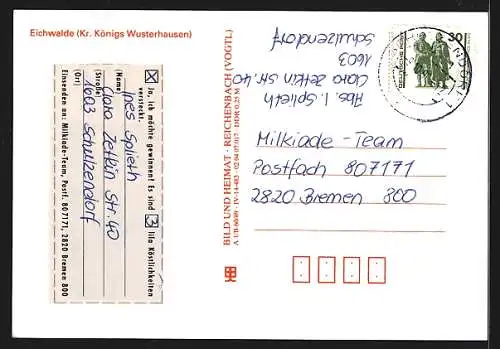 Eichwalde (Kr. Königs Wusterhausen)
Ja, ich möchte gewinnen! Es sind 3 lila Köstlichkeiten
versteckt.
Ines Splieth
(Name)
Clara Zetkin Str. 40
(Straße)
1603 Schulzendorf
(Ort)
Einsenden an: Milkiade-Team, Postf. 807171, 2820 Bremen 800
BILD UND HEIMAT · REICHENBACH (VOGTL.)
Abs. I. Splieth
Clara Zetkin Str. 40
1603
Schulzendorf
30
DEUTSCHE POST
Milkiade - Team
Postfach 807171
2820 Bremen 800